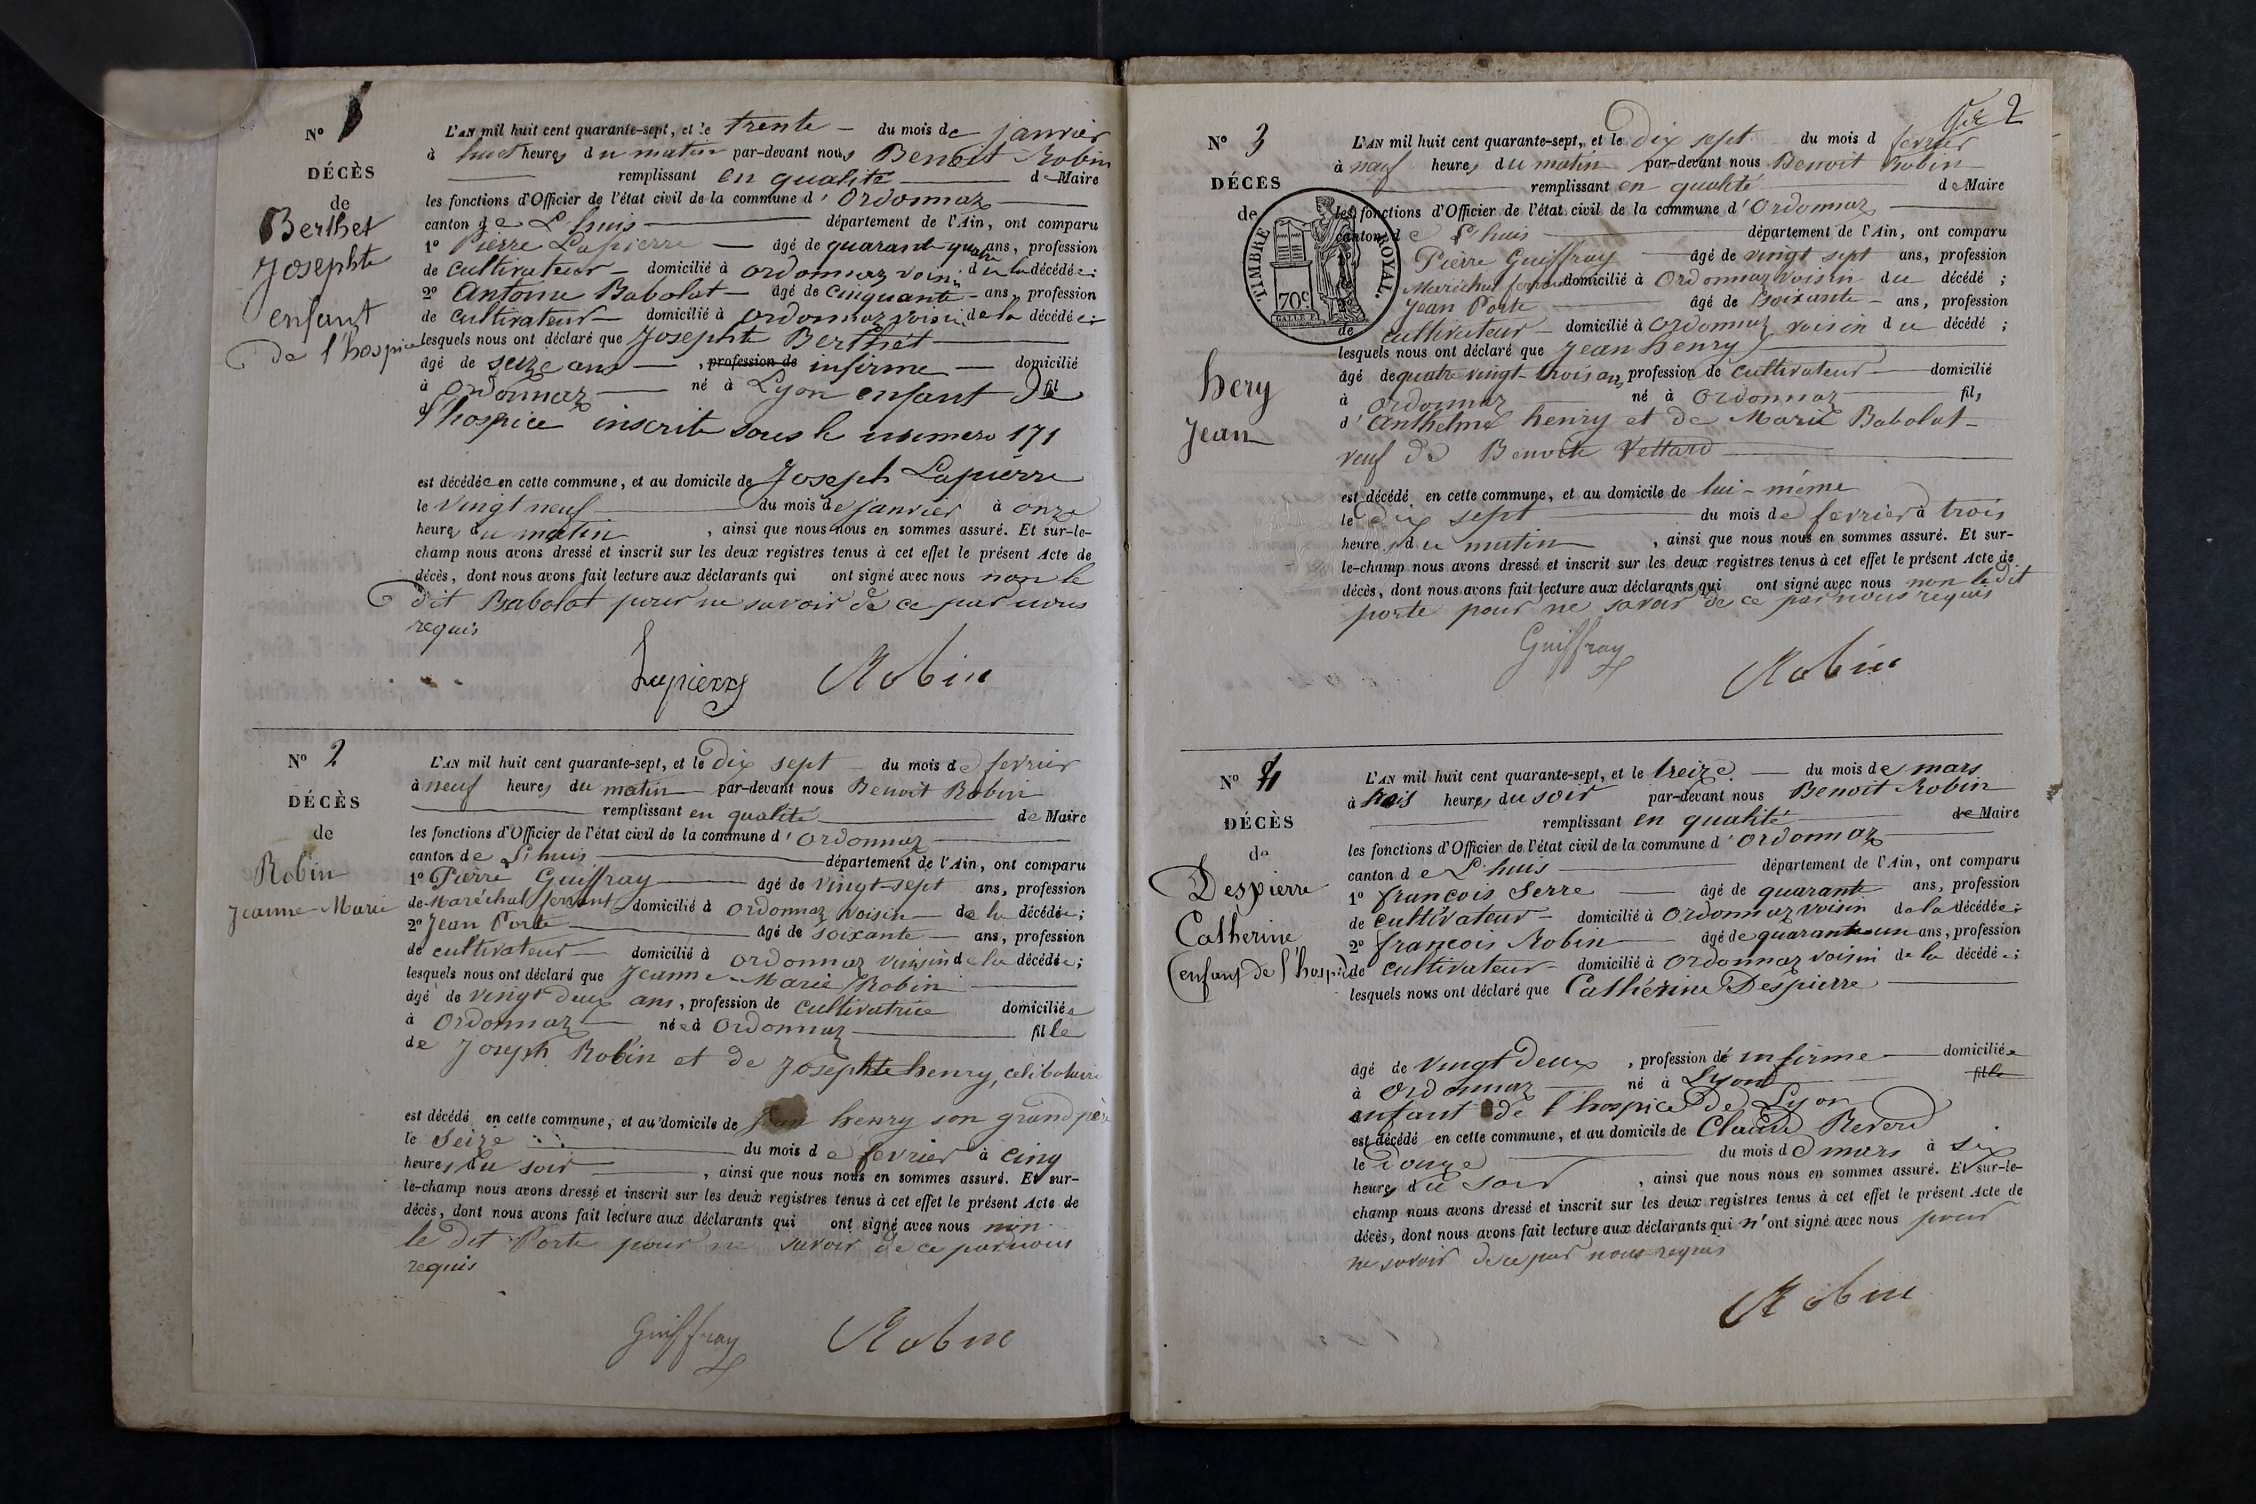 N° 1
DÉCÈS
de
Berthet
Josephte
enfant
de l'hospice
L'AN mil huit cent quarante-sept, et le trente - du mois de janvier
à huit heures du matin par-devant nous Benoit Robin
remplissant en qualité de Maire
les fonctions d'Officier de l'état civil de la commune d'Ordonnaz
canton de L'huis département de l'Ain, ont comparu
1° Pierre Lapierre - âgé de quarante quatre ans, profession
de cultivateur - domicilié à ordonnaz voisin de la décédée;
2° Antoine Babolat - âgé de cinquante - ans, profession
de cultivateur domicilié à ordonnaz voisin de la décédée;
lesquels nous ont déclaré que Josephte Berthet
âgé de seize ans - , profession de infirme - domicilié
à ordonnaz né à Lyon enfant de fil
d l'hospice inscrite sous le numero 171
est décédée en cette commune, et au domicile de Joseph Lapierre
le vingt neuf du mois de janvier à onze
heures du matin , ainsi que nous nous en sommes assuré. Et sur-le-
champ nous avons dressé et inscrit sur les deux registres tenus à cet effet le présent Acte de
décès, dont nous avons fait lecture aux déclarants qui ont signé avec nous non le
dit Babolat pour ne savoir de ce par nous
requis
Lapierre Robin
N° 2
DÉCÈS
de
Robin
Jeanne-Marie
L'AN mil huit cent quarante-sept, et le dix sept - du mois de fevrier
à neuf heures du matin par-devant nous Benoit Robin
remplissant en qualité de Maire
les fonctions d'Officier de l'état civil de la commune d'Ordonnaz
canton de L'huis département de l'Ain, ont comparu
1° Pierre Guiffray âgé de vingt-sept ans, profession
de Maréchal ferrant domicilié à Ordonnaz voisin de la décédée;
2° Jean Porte âgé de soixante ans, profession
de cultivateur domicilié à ordonnaz voisin de la décédée;
lesquels nous ont déclaré que Jeanne-Marie Robin
âgé de vingt deux ans, profession de cultivatrice domiciliée
à Ordonnaz née à Ordonnaz fille
de Joseph Robin et de Josephte henry, celibataire
est décédé en cette commune, et au domicile de Jean henry son grand père
le seize du mois de fevrier à cinq
heures du soir , ainsi que nous nous en sommes assuré. Et sur-
le-champ nous avons dressé et inscrit sur les deux registres tenus à cet effet le présent Acte de
décès, dont nous avons fait lecture aux déclarants qui ont signé avec nous non
le dit Porte pour ne savoir de ce par nous
requis
Guiffray Robin
2
N° 3
DÉCÈS
de
TIMBRE ROYAL.
70c
hery
Jean
L'AN mil huit cent quarante-sept, et le dix sept du mois d fevrier
à neuf heures du matin par-devant nous Benoit Robin
remplissant en qualité de Maire
les fonctions d'Officier de l'état civil de la commune d'Ordonnaz
canton de L'huis département de l'Ain, ont comparu
Pierre Guiffray âgé de vingt sept ans, profession
Maréchal ferrant domicilié à Ordonnaz voisin du décédé;
Jean Porte âgé de soixante - ans, profession
de cultivateur - domicilié à Ordonnaz voisin du décédé;
lesquels nous ont déclaré que Jean henry
âgé de quatre vingt trois ans, profession de cultivateur domicilié
à Ordonnaz né à Ordonnaz fils
d'Anthelme henry et de Marie Babolat -
veuf de Benoite Vettard
est décédé en cette commune, et au domicile de lui-même
le dix sept du mois de fevrier à trois
heures du matin , ainsi que nous nous en sommes assuré. Et sur-
le-champ nous avons dressé et inscrit sur les deux registres tenus à cet effet le présent Acte de
décès, dont nous avons fait lecture aux déclarants qui ont signé avec nous non le dit
porte pour ne savoir de ce par nous requis
Guiffray
Robin
N° 4
DÉCÈS
de
Despierre
Catherine
(enfant de l'hospice
L'AN mil huit cent quarante-sept, et le treize - du mois de mars
à trois heures du soir par-devant nous Benoit Robin
remplissant en qualité de Maire
les fonctions d'Officier de l'état civil de la commune d'Ordonnaz
canton de L'huis département de l'Ain, ont comparu
1° françois Serre âgé de quarante ans, profession
de cultivateur - domicilié à Ordonnaz voisin de la décédée;
2° françois Robin âgé de quarante un ans, profession
de cultivateur - domicilié à Ordonnaz voisin de la décédée;
lesquels nous ont déclaré que Cathérine Despierre
âgé de vingt deux , profession de infirme domiciliée
à Ordonnaz né à Lyon fille
enfant de l'hospice de Lyon
est décédé en cette commune, et au domicile de Claude Reverd
le douze du mois de mars à six
heures du soir , ainsi que nous nous en sommes assuré. Et sur-le-
champ nous avons dressé et inscrit sur les deux registres tenus à cet effet le présent Acte de
décès, dont nous avons fait lecture aux déclarants qui n'ont signé avec nous pour
ne savoir de ce par nous requis
Robin